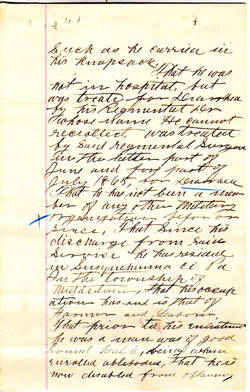 Such as he carried in
his Knapsack.
That he was
not in hospital, but
was treated for Diarrhea
by his Regimental Dr
whose name He cannot
recollect was treated
by said regimental Surgeon
in the latter part of
June and fore part of
July 1865, for Diarrhea
That he has not been a mem
ber of any other Military
organization before or
since, That since his
discharge from said
Service he has resided
in Susquehanna Co Pa
in the Township of
That his occup
ation has and is that of
Farmer and Laborer
That prior to his enlistment
he was a man was of good
sound health, being when
enrolled ablebodied, That he is
now disabled from obtaining